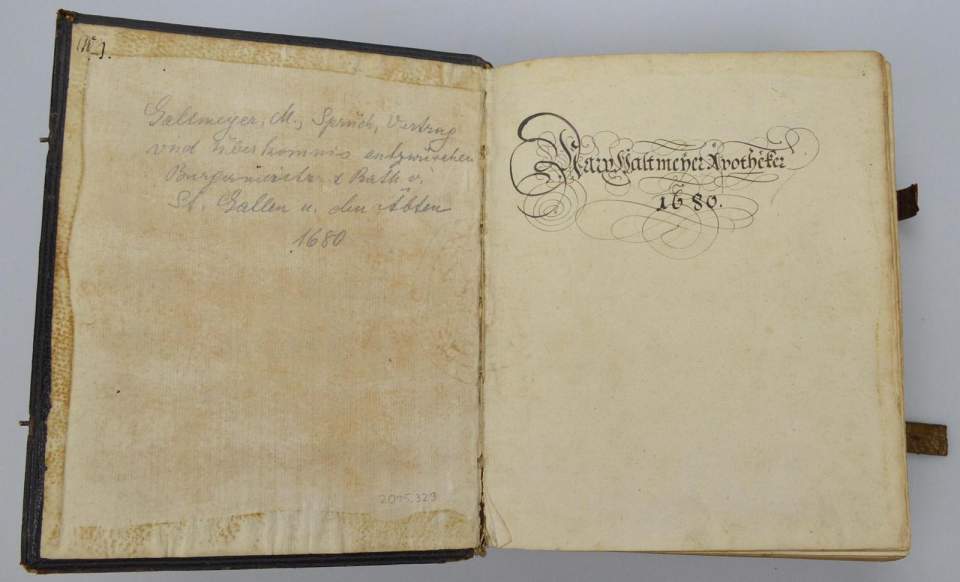 Galtmeyer, M., Sprüch, Vertrag
vnd Überkomnis entzwüschen
Burgermeister & Rath v.
St. Gallen u. den Äbten
1680
2015.323
Marx Haltmeyer Apotheker
1680.